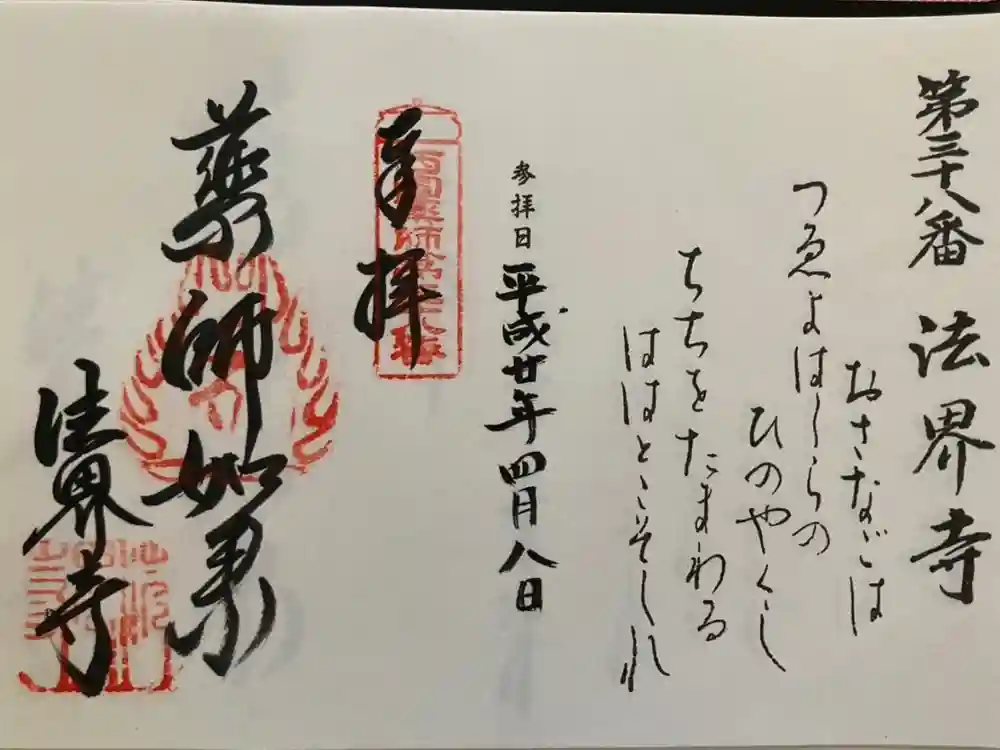 第三十八番 法界寺
おさなごは
ひのやくし
つゑよはしらの
ちちをたまわる
ははとこそしれ
参拝日 平成廿年四月八日
奉拝
西国薬師第三十八番
薬師如来
法界寺